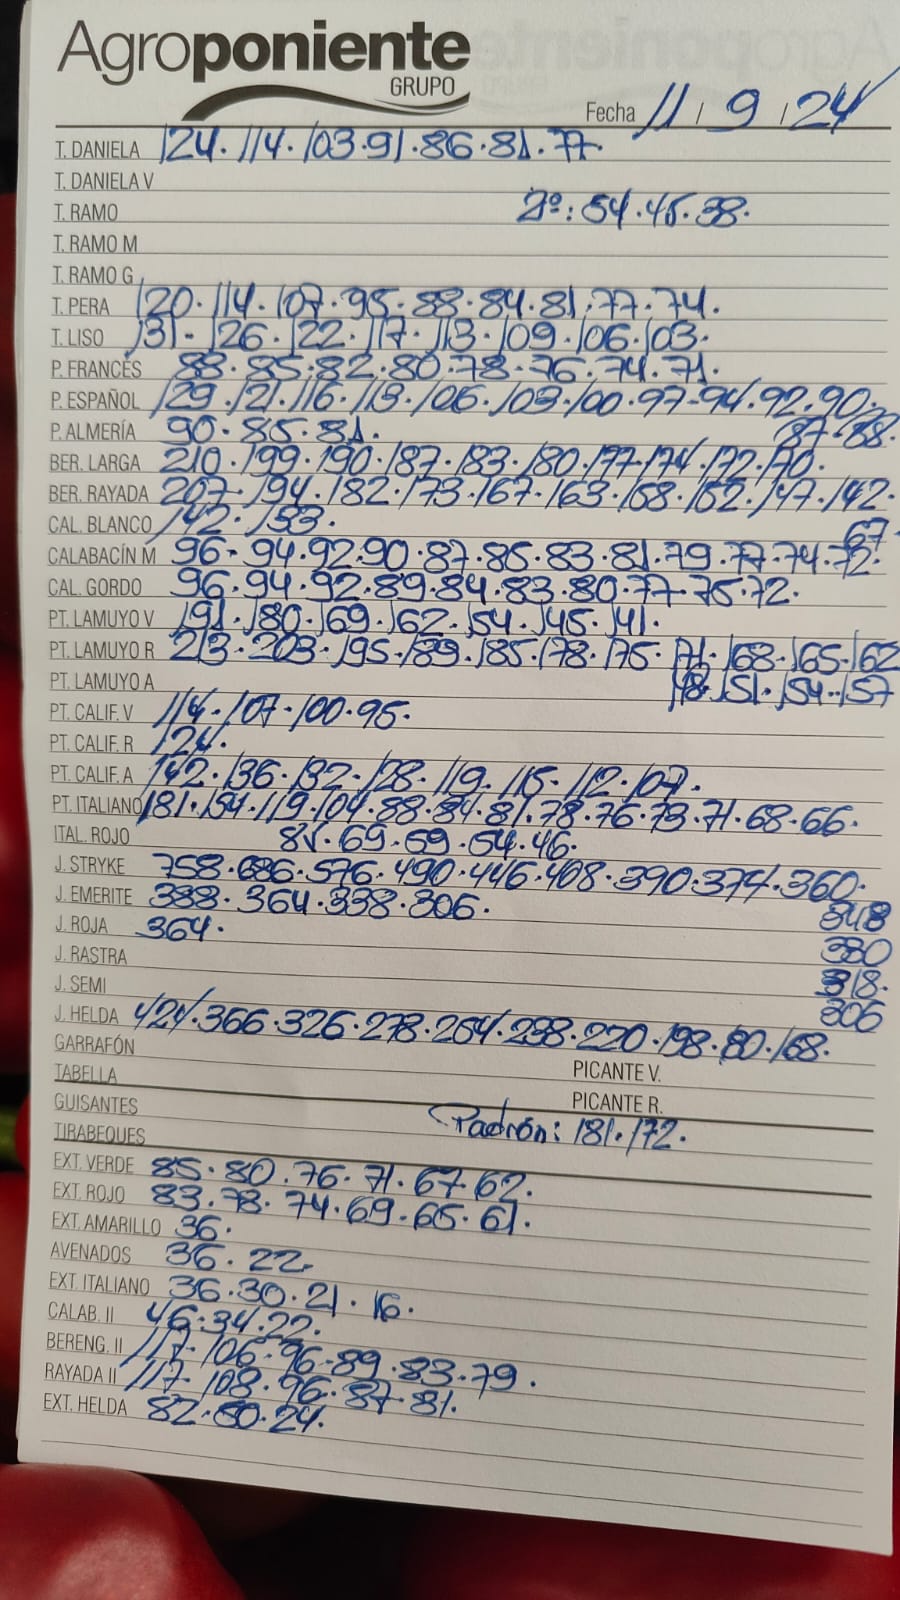 Agroponiente
GRUPO
Fecha 11 / 9 / 24
T. DANELA 124. 114. 103. 91. 86. 81. 77.
T. DANIELA V
T. RAMO 2º: 54. 45. 38.
T. RAMO M
T. RAMO G
T. PERA 120. 114. 107. 95. 88. 84. 81. 77. 74.
T. LISO 131. 126. 122. 117. 113. 109. 106. 103.
P. FRANCÉS 88. 85. 82. 80. 78. 76. 74. 71.
P. ESPAÑOL 129. 121. 116. 113. 106. 103. 100. 97. 94. 92. 90.
87. 88.
P. ALMERÍA 90. 85. 81.
BER. LARGA 210. 199. 190. 187. 183. 180. 177. 174. 172. 170.
BER. RAYADA 207. 194. 182. 173. 167. 163. 158. 152. 147. 142.
CAL. BLANCO 142. 133.
67.
CALABACÍN M 96. 94. 92. 90. 87. 85. 83. 81. 79. 77. 74. 72.
CAL. GORDO 96. 94. 92. 89. 84. 83. 80. 77. 75. 72.
PT. LAMUYO V 191. 180. 169. 162. 154. 145. 141.
PT. LAMUYO R 213. 203. 195. 189. 185. 178. 175. 171. 168. 165. 162
PT. LAMUYO A 151. 154. 157
PT. CALIF. V 114. 107. 100. 95.
PT. CALIF. R 124.
PT. CALIF. A 142. 136. 132. 128. 119. 115. 112. 107.
PT. ITALIANO 181. 154. 119. 104. 88. 84. 81. 78. 76. 73. 71. 68. 66.
ITAL. ROJO 81. 69. 59. 54. 46.
J. STRYKE 758. 686. 576. 490. 446. 408. 390. 374. 360.
348
J. EMERITE 388. 364. 338. 306.
J. ROJA 364.
330
J. RASTRA
318.
J. SEMI
306
J. HELDA 424. 366. 326. 278. 254. 238. 220. 198. 180. 168.
GARRAFÓN
PICANTE V.
TABELLA
PICANTE R.
GUISANTES
Padrón: 181. 172.
TIRABEQUES
EXT. VERDE 85. 80. 76. 71. 67. 62.
EXT. ROJO 83. 78. 74. 69. 65. 61.
EXT. AMARILLO 36.
AVENADOS 36. 22.
EXT. ITALIANO 36. 30. 21. 16.
CALAB. II 46. 34. 22.
BERENG. II 117. 106. 96. 89. 83. 79.
RAYADA II 117. 108. 96. 87. 81.
EXT. HELDA 82. 60. 24.